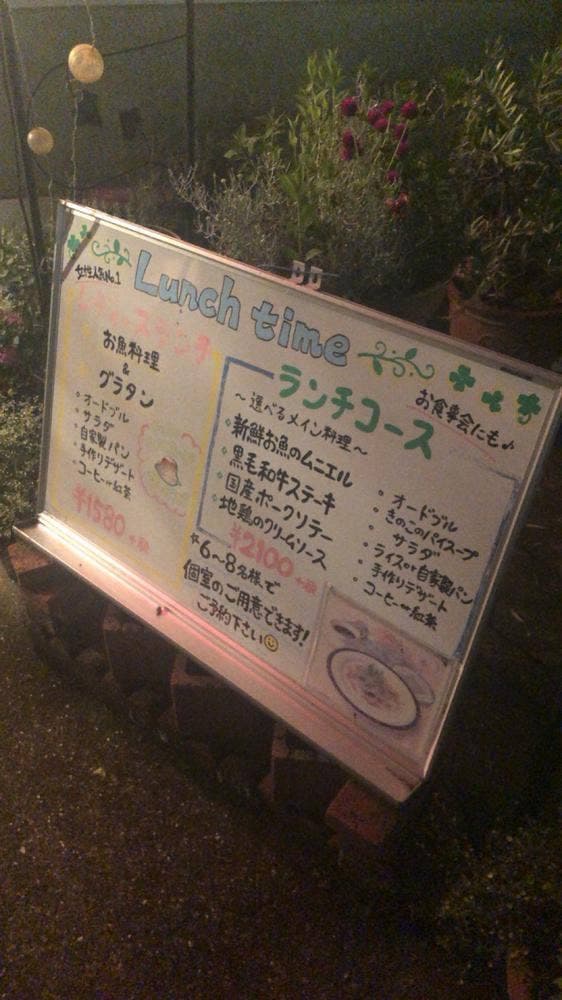 Lunch time
女性人気No.1
ランチ
お魚料理
&
グラタン
・オードブル
・サラダ
・自家製パン
・手作りデザート
・コーヒーor紅茶
¥1580
ランチコース
お食事会にも♪
〜選べるメイン料理〜
新鮮お魚のムニエル
黒毛和牛ステーキ
国産ポークソテー
地鶏のクリームソース
¥2100
・オードブル
・きのこのパイスープ
・サラダ
・ライスor自家製パン
・手作りデザート
・コーヒーor紅茶
☆6〜8名様で
個室のご用意できます!
ご予約下さい